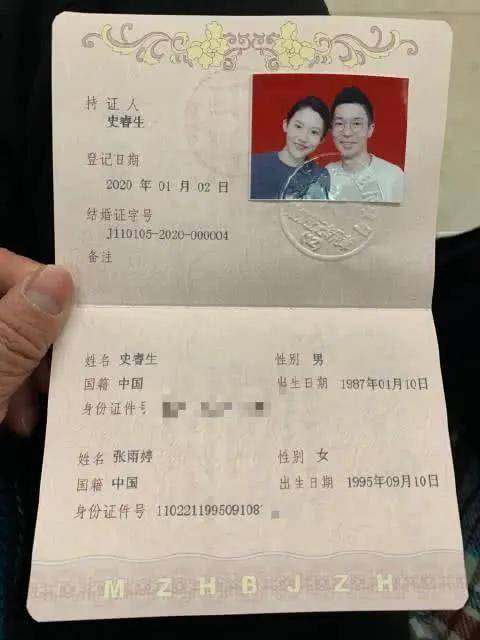 持证人
史睿生
登记日期
2020 年 01 月 02 日
结婚证字号
J110105-2020-000004
备注
姓名 史睿生 性别 男
国籍 中国 出生日期 1987年01月10日
身份证件号
姓名 张雨婷 性别 女
国籍 中国 出生日期 1995年09月10日
身份证件号 110221199509108
M Z H B J Z H